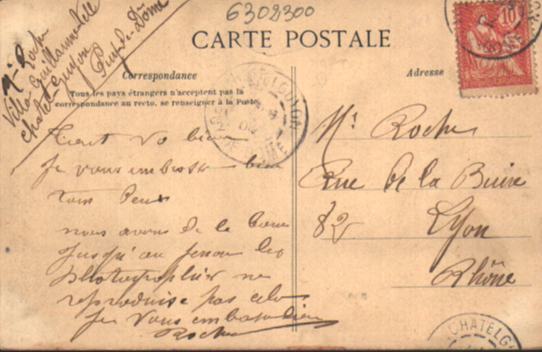 6302300
CARTE POSTALE
Correspondance
Tous les pays étrangers n'acceptent pas la
correspondance au recto, se renseigner à la Poste
Adresse
10
Roche
Villa Guillaumatelle
Chatel Guyon
Puy-de-Dôme
Tout va bien
Je vous embrasse bien
tous deux
nous avons de la boue
jusqu'au genou les
photographies ne
reproduise pas cela
Je vous embrasse
Roche
Mr Roche
Rue de la Buire
82 Lyon
Rhône
CHATELG